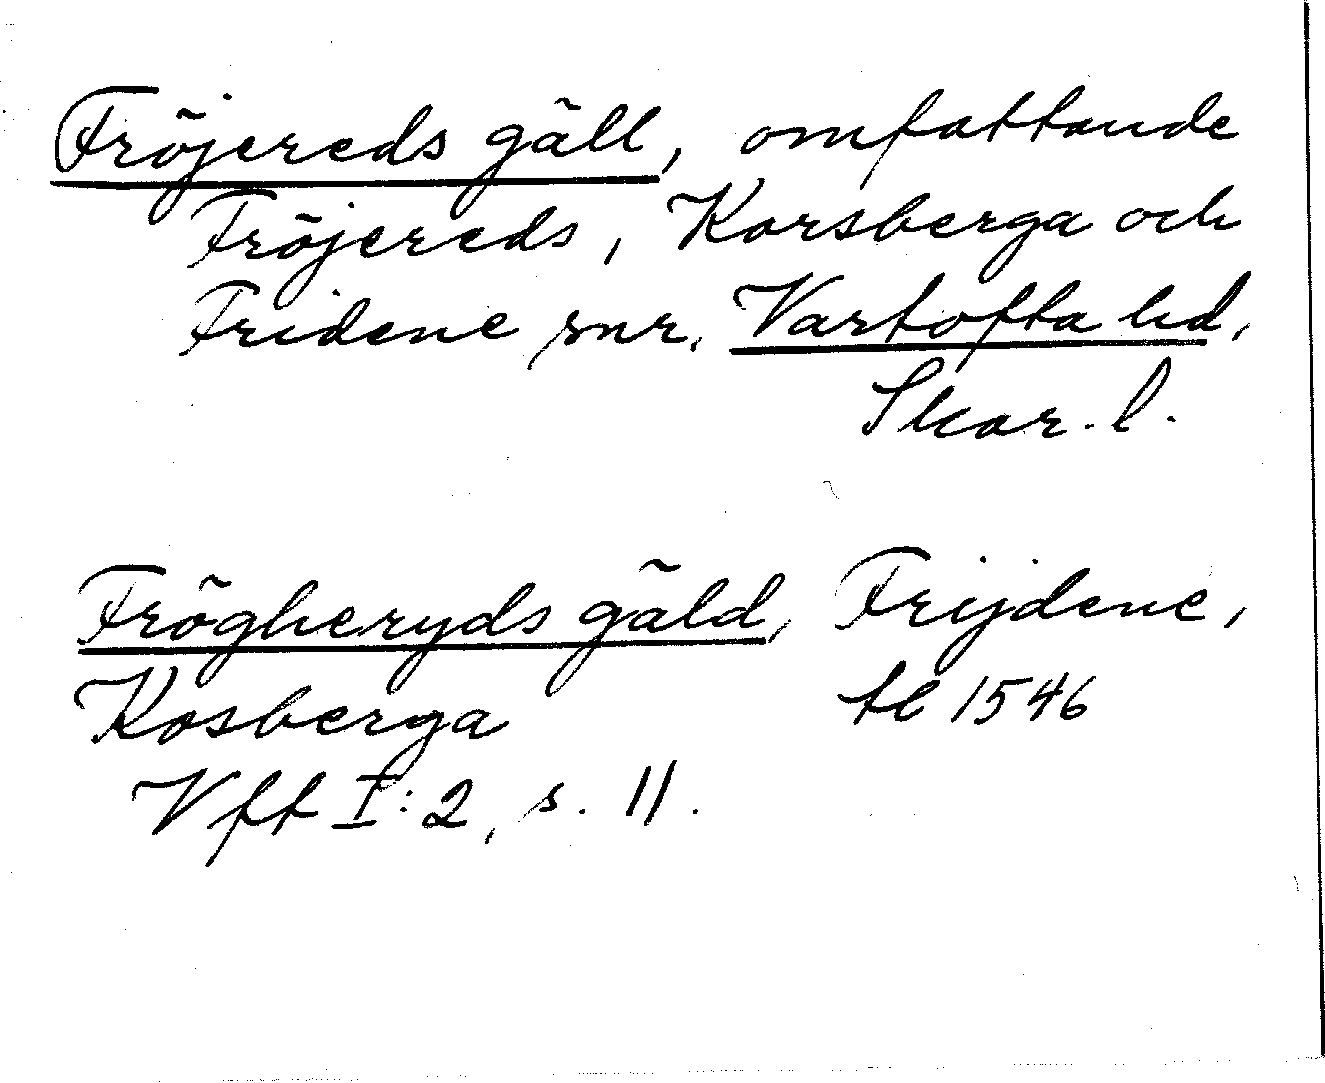 Fröjereds gäll, omfattande
Fröjereds, Korsberga och
Fridene snr. Vartofta hd,
Skar. l.
Frögheryds gäld, Frijdene,
Kosberga tl 1546
Vff I:2, s. 11.